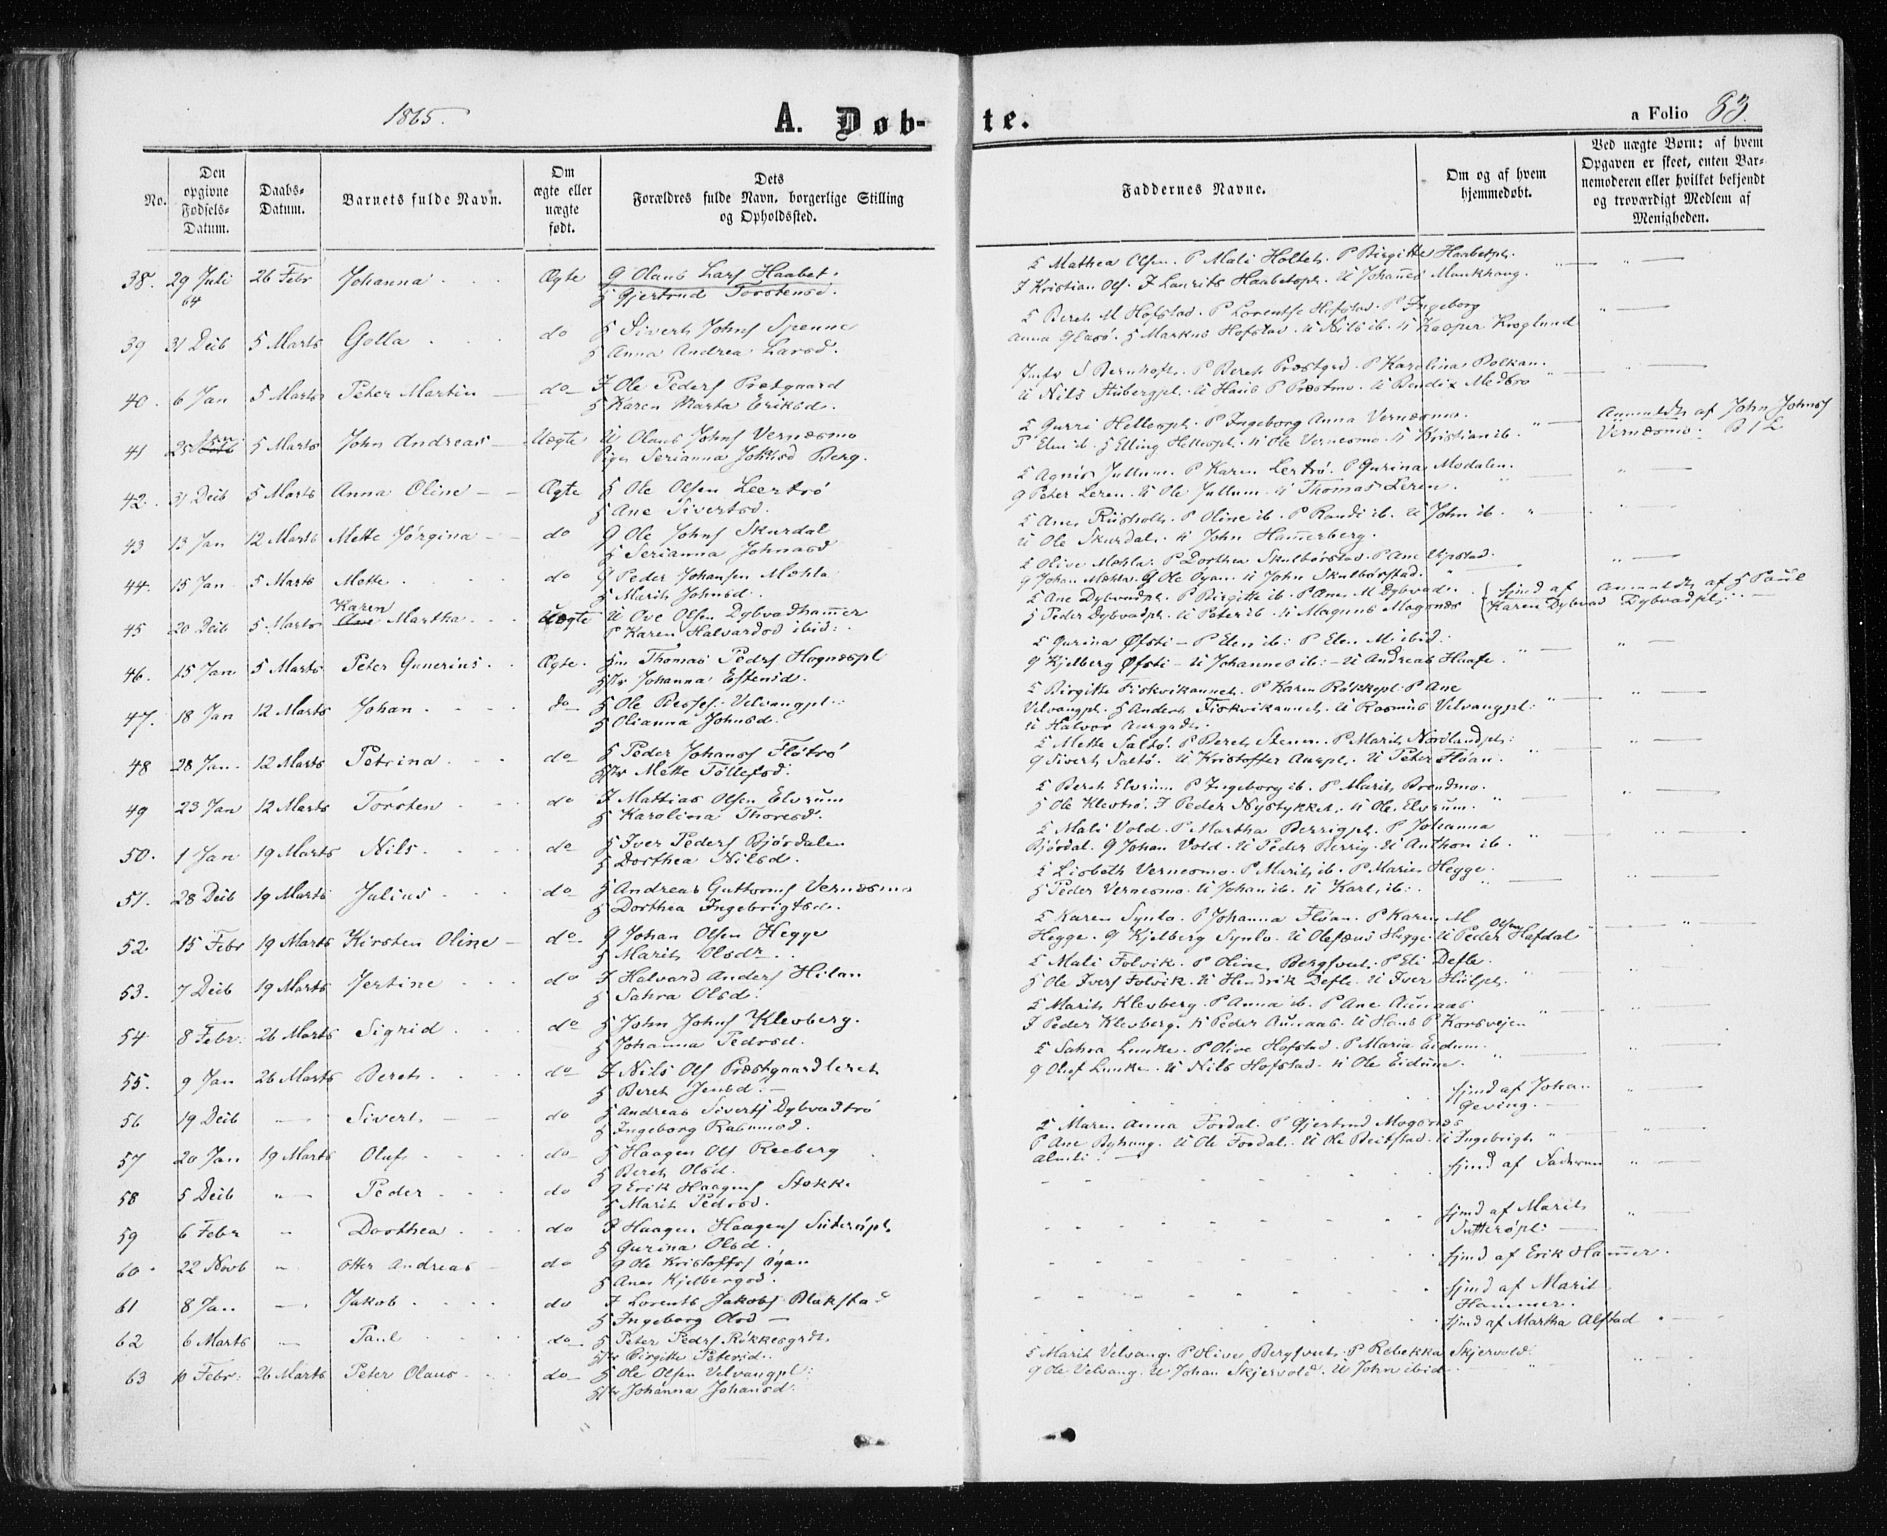 1865.
A. Døb-te.
a Folio 83.
No.
Den opgivne Fødsels-Datum.
Daabs-Datum.
Barnets fulde Navn.
Om ægte eller uægte født.
Dets Forældres fulde Navn, borgerlige Stilling og Opholdssted.
Faddernes Navne.
Om og af hvem hjemmedøbt.
Ved uægte Børn: af hvem Opgaven er skeet, enten Barnemoderen eller hvilket bekjendt og troværdigt Medlem af Menigheden.
38. 29 Juli 64 26 Febr Johanna Ægte G Olaus Lars Haabet.
Gjertrud Torstensd.
Mathea Olsen. P Mali Holteh. P Birgitte Haabetpl.
I Kristian Ols. I Laurits Haabetspl. U Johanes Munkhaug.
39 31 Deib 5 Marts Golla do Sivert Johns Spenne
Anna Andrea Larsd.
Beret M Hofstad. P Lorentse Hofstad. P Ingeborg
Anna Glasø. Markus Hofstad. U Nils ib. Kasper Kroglund
40. 6 Jan 5 Marts Peter Martin do I Ole Peders Prætgaard
Karen Marta Eriksd.
P Beret Præstgrd. P Karolina
U Nils Stubergpl. U Hans P Præstmo. U Bendix Medbro
41 25 Jan 5 Marts John Andreas Uægte U Olaus Johns Vernæsmo
Pigen Serianna Johnsd Berg.
Gurri Hellespl. P Ingeborg Anna Vernæsmo.
P Elen ib. Elling Hellespl. Ole Vernesmo. Kristian ib.
Anmeldt af John Johns Vernæsmo.
42. 31 Deib 5 Marts Anna Oline Ægte Ole Olsen Leertrø
Ane Sivertsd.
Agnes Jullum. P Karen Lertrø. P Gurina Modalen.
G Peter Leren. Ole Jullum. Thomas Leren.
43 13 Jan 12 Marts Mette Jørgina do G Ole Johns Skurdal
Serianna Johnasd
P Oline ib. P Randi ib. U John ib.
U Ole Skurdal. John Hamerberg.
44. 15 Jan 5 Marts Mette do G Peder Johansen Mæhla
Marit Johnsd.
Olive Mæhla. P Dorthea Skulbørstad. P Ane
G Johan Mæhla. G Ole Øyan. U John Skulbørstad.
45 20 Deib 5 Marts Karen Martha Uægte U Ove Olsen Dybvadhamer
P Karen Halvardsd ibid:
Ane Dybvadpl. P Birgitte ib. P Ane M Dybvadn.
Peder Dybvadpl. U Peter ib. Magnus Mogsnæs
hjmd af Karen Dybvad
Anmeldt af Paul Dybvadpl.
46. 15 Jan 5 Marts Peter Gunerius Ægte Thomas Peders Hognæspl
Johanna Estensd.
Gurina Øfsti - P Elen ib: P Elen M ibid:
G Kjelberg Øfsti - U Johannes ib: - U Andreas Haafe.
47. 18 Jan 12 Marts Johan do Ole Velvangpl.
Olianna Johnsd.
Birgitte Fiskvikaunet. P Karen Røkkepl. P Ane
Velvangpl. Anders Fiskvikaunet. U Rasmus Velvangpl:
U Halvor
48 28 Jan 12 Marts Petrina do Peder Johans Fløtrø
Mette Tollefsd.
Mette Saltø. P Beret Stenen. P Marit Nordlandpl:
G Sivert Saltø. U Kristoffer U Peter Fløan.
49 23 Jan 12 Marts Torsten do I Mattias Olsen Elvrum
Karolina Thoresd.
Beret Elvrum. P Ingeborg ib. P Marit Brendmo.
Ole Klevtrø. I Peder Nystykket. Ole Elvrum.
50. 1 Jan 19 Marts Nils do Iver Peders Bjørdalen
Dorthea Nilsd.
Mali Vold. P Martha Berrigpl. P Johanna
Bjørdal. G Johan Vold. U Peder Berrig. U Anthon ib.
51. 28 Deib 19 Marts Julius do Andreas Guttorms Vernæsmo
Dorthea Ingebrigtsd.
Lisbeth Vernesmo. P Marit ib. P Marie Hegge.
Peder Vernesmo. U Johan ib. U Karl ib.
52. 15 Febr 19 Marts Kirsten Oline do G Johan Olsen Hegge
Marit Olsdr.
Karen Synlo. P Johanna Fløan. P Karen M
Hegge. G Kjelberg Synlo. U Olefæus Hegge. U Peder Olsen Hofdal
53. 7 Deib 19 Marts Jertine do I Halvard Anders Hilan
Sahra Olsd.
Mali Folvik. P Oline Bergfvet. P Eli Defle.
Ole Ivers Folvik. U Hendrik Defle. U Iver Hilpl.
54 8 Febr: 26 Marts Sigrid do John Johns Klevberg.
Johanna Pedersd.
Marit Klevberg. P Anna ib. P Ane Aunaas
I Peder Klevberg. Peder Aunaas. U Hans P Korsvejen
55. 9 Jan 26 Marts Beret do I Nils Ols Præstgaardleret
Beret Jensd.
Sahra Lunke. P Olive Hofstad. P Maria Eidum.
G Oluf Lunke. U Nils Hofstad. Ole Eidum.
56 19 Deib Sivert do Andreas Siverts Dybvadtrø
Ingeborg Rasmusd.
hjmd af Johan Geving.
57 20 Jan 19 Marts Oluf do Haagen Ols Reeberg
Beret Olsd.
Maren Anna Fordal. P Gjertrud Mogsnæs
P Ane Byhaug. U Ole Fordal. U Ole Reitstad. Ingebrigt
58 5 Deib Peder do G Erik Haagens Stokke
Marit Pedersd.
hjmd af Faderen
59 6 Febr Dorthea do I Haagen Haagens Sutterøpl.
Gurina Olsd.
hjmd af Marit Sutterøpl:
60 22 Novb Otter Andreas do G Ole Kristoffers Øyan
Ane Kjelbergsd.
hjmd af Erik Hamer.
61 8 Jan Jakob do I Lorents Jakobs Blakstad
Ingeborg Olsd
hjmd af Marit Hammer.
62 6 Marts Paul do Peter Peders Røkkesgrdt.
Birgitte Petersd.
hjmd af Martha Alstad
63 10 Febr: 26 Marts Peter Olaus do Ole Olsen Velvangpl:
Johanna Johansd.
Marit Velvang. P Olive Bergfvet. P Rebekka Skjervold.
G Ole Velvang. U Johan Skjervold. U John ibid